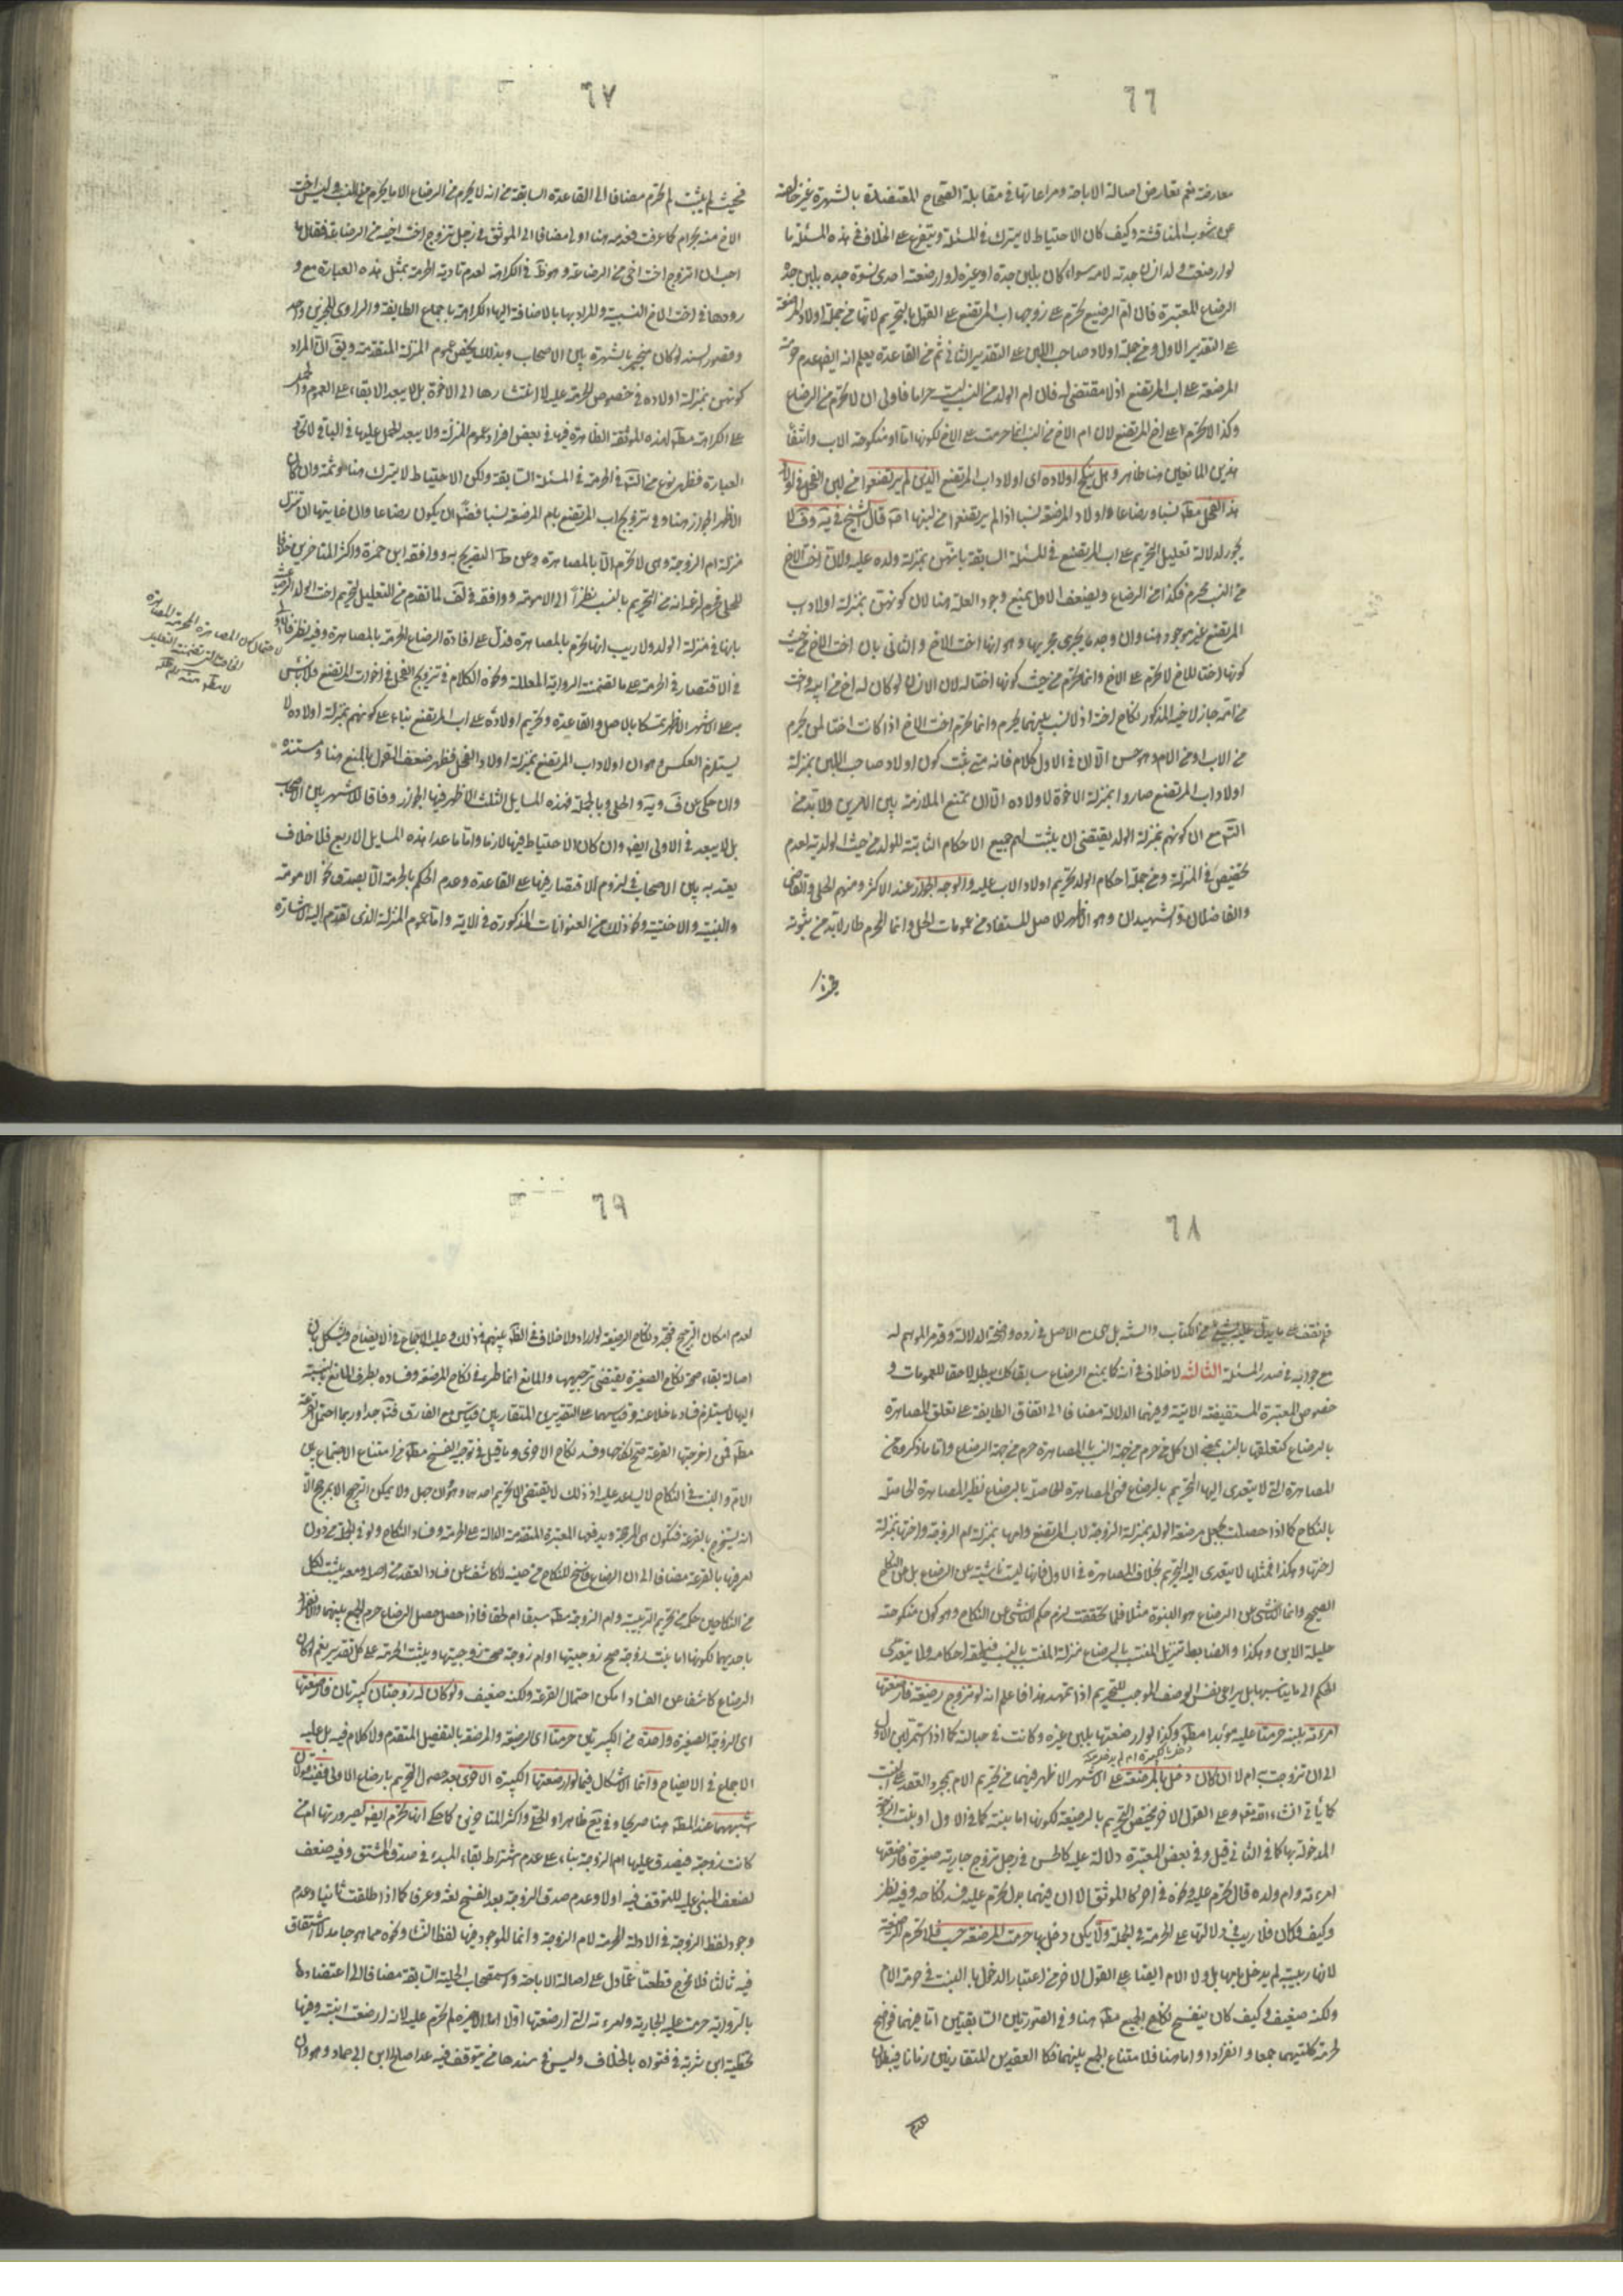 ٦٦
معارضة نعم تعارض اصالة الاباحة ومراعاتها في مقابلة الصحاح المعتضدة بالشهرة غير خالصة
عن شوب المناقشة وكيف كان الاحتياط لا يترك في المسئلة ويتفرع على الخلاف في هذه المسئلة ما
لو ارضعت ولد انسان جدته لامه سواء كان بلبن جده او غيره او ارضعته احدى نسوة جده بلبن جده
الرضاع المعتبرة فان ام الرضيع تحرم على زوجها اب المرتضع على القول بالتحريم لانها من جملة اولاد المرضعة
على التقدير الاول ومن جملة اولاد صاحب اللبن على التقدير الثاني ثم من القاعدة يعلم انه ايضا عدم حرمة
المرضعة على اب المرتضع اذ لا مقتضى له فان ام الولد من النسب ليست حراما فاولى ان لا تحرم من الرضاع
وكذا لا تحرم على اخ المرتضع لان ام الاخ من النسب انما حرمت على الاخ لكونها اما او منكوحة الاب وانتفاء
هذين المانعين هنا ظاهر وهل ينكح اولاده اى اولاد اب المرتضع الذين لم يرتضعوا من لبن الفحل في اولاد
هذا الفحل مط نسبا ورضاعا واولاد المرضعة نسبا اذا لم يرتضعوا من لبنها اقه قال الشيخ في يه وف لا
يجوز لدلالة تعليل التحريم على اب المرتضع في المسئلة السابقة بانهن بمنزلة ولده عليه ولان اخت الاخ
من النسب محرم فكذا من الرضاع ويضعف الاول بمنع وجود العلة هنا لان كونهن بمنزلة اولاد اب
المرتضع غير موجود هنا وان وجد ما يجرى مجريها وهو انها اخت الاخ والثاني بان اخت الاخ من حيث
كونها اختا للاخ لا تحرم على الاخ وانما تحرم من حيث كونها اختا له لان الانسان لو كان له اخ من ابيه واخت
من امه جاز لاخيه المذكور نكاح اخته اذ لا نسب بينهما يحرم وانما تحرم اخت الاخ اذا كانت اختا لمن يحرم
من الاب او من الام وهو حسن الا ان في الاول كلام فانه متى ثبت كون اولاد صاحب اللبن بمنزلة
اولاد اب المرتضع صاروا بمنزلة الاخوة لاولاده الا ان تمنع الملازمة بين الامرين ولا بد من
التم مع ان كونهم بمنزلة الولد يقتضى ان يثبت لهم جميع الاحكام الثابتة للولد من حيث الولدية لعدم
تخصيص في المنزلة ومن جملة احكام الولد تحريم اولاد الاب عليه والوجه الجواز عند الاكثر ومنهم الحلي والقاضي
والفاضلان والشهيدان وهو الاظهر للاصل المستفاد من عمومات الحل وانما المحرم طار لا بد من ثبوته
٦٧
فحيث لم يثبت لم تحرم مضافا الى القاعدة السابقة من انه لا يحرم من الرضاع الا ما يحرم من النسب وليس اخت
الاخ منه بحرام كما عرفت فعدمه هنا اولى مضافا الى الموثق في رجل تزوج اخت اخيه من الرضاعة فقال ما
احب ان اتزوج اخت اخى من الرضاعة وهو ظ في الكراهة لعدم تادية الحرمة بمثل هذه العبارة مع و
رودها في اخت الاخ النسبية والمراد بها بالاضافة اليها الكراهة باجماع الطايفة والراوى للخبرين واحد
وقصور سنده لو كان منجبر بالشهرة بين الاصحاب وبذلك يخص عموم المنزلة المتقدمة ويق ان المراد
كونهن بمنزلة اولاده في خصوص الحرمة عليه لا انتشارها الى الاخوة بل لا يبعد الابقاء على العموم والحمل
على الكراهة مط لهذه الموثقة الظاهرة فيها في بعض افراد عموم المنزلة ولا يبعد الحمل عليها في الباقي لاتحاد
العبارة فظهر نوع من التم في الحرمة في المسئلة السابقة ولكن الاحتياط لا يترك هنا وثمة وان كان
الاظهر الجواز هنا وفي تزويج اب المرتضع بام المرضعة نسبا فضلا ان يكون رضاعا وان غايتها ان تنزل
منزلة ام الزوجة وهى لا تحرم الا بالمصاهرة وعن ط التصريح به ووافقه ابن حمزة واكثر المتاخرين خلافا
للحلي فحرم لزعمه انه من التحريم بالنسب نظرا الى الامومة ووافقه في لف لما تقدم من التعليل لتحريم اخت الولد الرضاعية
بانها في منزلة الولد ولا ريب انها تحرم بالمصاهرة فدل على افادة الرضاع الحرمة بالمصاهرة وفيه نظر فالاولى
في الاقتصار في الحرمة على ما تضمنت الرواية المعللة ونحوه الكلام في تزويج الفحل في اخوات المرتضع فلا باس
به على الاشهر الاظهر تمسكا بالاصل والقاعدة وتحريم اولاده على اب المرتضع بناء على كونهم بمنزلة اولاده لا
يستلزم العكس وهو ان اولاد اب المرتضع بمنزلة اولاد الفحل فظهر ضعف القول بالمنع هنا ومستنده
وان حكى عن ف ويه والحلي وبالجملة فهذه المسايل الثلث الاظهر فيها الجواز وفاقا للاشهر بين الاصحاب
بل لا يبعد في الاولى ايضا وان كان الاحتياط فيها لازما واما ما عدا هذه المسايل الاربع فلا خلاف
يعتد به بين الاصحاب في لزوم الاقتصار فيها على القاعدة وعدم الحكم بالحرمة الا بصدق نحو الامومة
والبنتية والاختية ونحو ذلك من العنوانات المذكورة في الاية واما عموم المنزلة الذى تقدم اليه الاشارة
لاحتمال كون المصاهرة المحرمة المصاهرة
الخاصة التي تضمنت التعليل
لا مطلقا منه رحمه الله
٦٨
فلم نقف على ما يدل عليه من الكتاب والسنة بل حجج الاصل في رده واضحة الدلالة وقد مر الموهم له
مع جوابه في صدر المسئلة الثالثة لا خلاف في انه كما يمنع الرضاع سابقا كك يبطل لاحقا للعمومات و
خصوص المعتبرة المستفيضة الاتية وفيهما الدلالة مضافا الى اتفاق الطايفة على تعلق المصاهرة
بالرضاع كتعلقها بالنسب بمعنى ان كل من حرم من جهة النسب بالمصاهرة حرم من جهة الرضاع واما ما ذكروه من
المصاهرة التي لا يتعدى اليها التحريم بالرضاع فهى المصاهرة الحاصلة بالرضاع نظير المصاهرة الحاصلة
بالنكاح كما اذا حصلت بجعل مرضعة الولد بمنزلة الزوجة لاب المرتضع وامها بمنزلة ام الزوجة واختها بمنزلة
اختها وهكذا فمثلها لا يتعدى اليه التحريم بخلاف المصاهرة في الاول فانها ليست ناشية عن الرضاع بل عن النكاح
الصحيح وانما الناشى عن الرضاع هو البنوة مثلا فلما تحققت لزم حكم الناشى عن النكاح وهو كون منكوحته
حليلة الابن وهكذا والضابط تنزيل المنتسب بالرضاع منزلة المنتسب بالنسب فيلحقه احكامه ولا يتعدى
الحكم الى ما يناسبها بل يراعى نفس الوصف الموجب للتحريم اذا تمهد هذا فاعلم انه لو تزوج رضيعة فارضعتها
امرءته بلبنه حرمتا عليه مؤبدا مط وكذا لو ارضعتها بلبن غيره وكانت في حبالته كما اذا استمر لبن الاول
الى ان تزوجت به ام لا ان كان دخل بالمرضعة على الاشهر الاظهر فيهما من تحريم الام بمجرد العقد على البنت
كما يأتي انشاء الله تعالى وعلى القول الاخر يختص التحريم بالرضيعة لكونها اما بنته كما في الاول او بنت الزوجة
المدخولة بها كما في الثاني قيل وفي بعض المعتبرة دلالة عليه كالحسن في رجل تزوج جارية صغيرة فارضعتها
امرءته وام ولده قال تحرم عليه ونحوه في اخر كالموثق الا ان فيهما بدل تحرم عليه فسد نكاحه وفيه نظر
وكيف كان فلا ريب في دلالتها على الحرمة في الجملة ولو لم يكن دخل بها حرمت المرضعة حسب فلا تحرم الرضيعة
لانها ربيبة لم يدخل بامها بل ولا الام ايضا على القول الاخر من اعتبار الدخول بالبنت في حرمة الام
ولكنه ضعيف وكيف كان ينفسخ نكاح الجميع مط هنا وفي الصورتين السابقتين اما فيهما فواضح
لحرمة كلتيهما جمعا وانفرادا واما هنا فلامتناع الجمع بينهما فكا العقدين المتقارنين زمانا فيبطلان
لعدم
٦٩
لعدم امكان الترجيح فيجدد نكاح الرضيعة لو اراد ولا خلاف في الظ بينهم في ذلك وعليه الاجماع في الايضاح ويشكل بان
اصالة بقاء صحة نكاح الصغيرة يقتضى ترجيحها والمانع انما طرء في نكاح المرضعة وفساده بطرف المانع بالنسبة
اليها لا يستلزم فساد ما خلا عنه وقياسهما على التقديرين المتقاربين قياس مع الفارق فتامل جدا وربما احتمل القرعة
مط فمن اخرجتها القرعة صح نكاحها وفسد نكاح الاخرى وما قيل في توجيه الفسخ مط من امتناع الاجتماع بين
الام والبنت في النكاح لا يساعد عليه اذ ذلك لا يقتضى الا تحريم احدهما وهو كان جهل ولا يمكن الترجيح الا بمرجح الا
انه يستخرج بالقرعة فتكون هى المرجحة ويدفعها المعتبرة المتقدمة الدالة على الحرمة وفساد النكاح ولو في الجملة من دون
تعرض فيها بالقرعة مضافا الى ان الرضاع فاسخ للنكاح من حينه لا كاشف عن فساد العقد من اصله ومعه يثبت لكل
من النكاحين حكمه من تحريم الربيبة وام الزوجة مط سبقا ام لحقا فاذا حصل الرضاع حرم الجمع بينهما والانفراد
باحديهما لكونها اما بنت زوجة صح زوجيتها او ام زوجة صحت زوجيتها ويثبت الحرمة على كل تقدير نعم لو كان
الرضاع كاشفا عن الفساد امكن احتمال القرعة ولكنه ضعيف ولو كان له زوجتان كبيرتان فارضعتها
اى الزوجة الصغيرة واحدة من الكبيرتين حرمتا اى الرضيعة والمرضعة بالتفصيل المتقدم ولا كلام فيه بل عليه
الاجماع في الايضاح وانما الاشكال فيما لو ارضعتها الكبيرة الاخرى بعد حصول التحريم بارضاع الاولى ففيه قولان
اشبههما عند المط هنا صريحا وفي يع ظاهرا والحلي واكثر المتاخرين كما حكى انها تحرم ايضا لصيرورتها ام من
كانت زوجة فيصدق عليها ام الزوجة بناء على عدم اشتراط بقاء المبدء في صدق المشتق وفيه ضعف
لضعف المبنى عليه للتوقف فيه اولا وعدم صدق الزوجة بعد الفسخ لغة وعرفا كما اذا طلقت ثانيا وعدم
وجود لفظ الزوجة في الادلة المحرمة لام الزوجة وانما الموجود فيها لفظ النساء ونحوه مما هو جامد لا اشتقاق
فيه ثالثا فلا مخرج قطعيا عما دل على اصالة الاباحة واستصحاب الحلية السابقة مضافا الى اعتضادها
بالرواية حرمت عليه الجارية وامرءته التي ارضعتها اولا اما الاخيرة لم تحرم عليه لانها ارضعت ابنته وفيها
تخطئة ابن شبرمة في فتواه بالخلاف وليس في سندها من يتوقف فيه عدا صالح ابن ابى حماد وهو وان